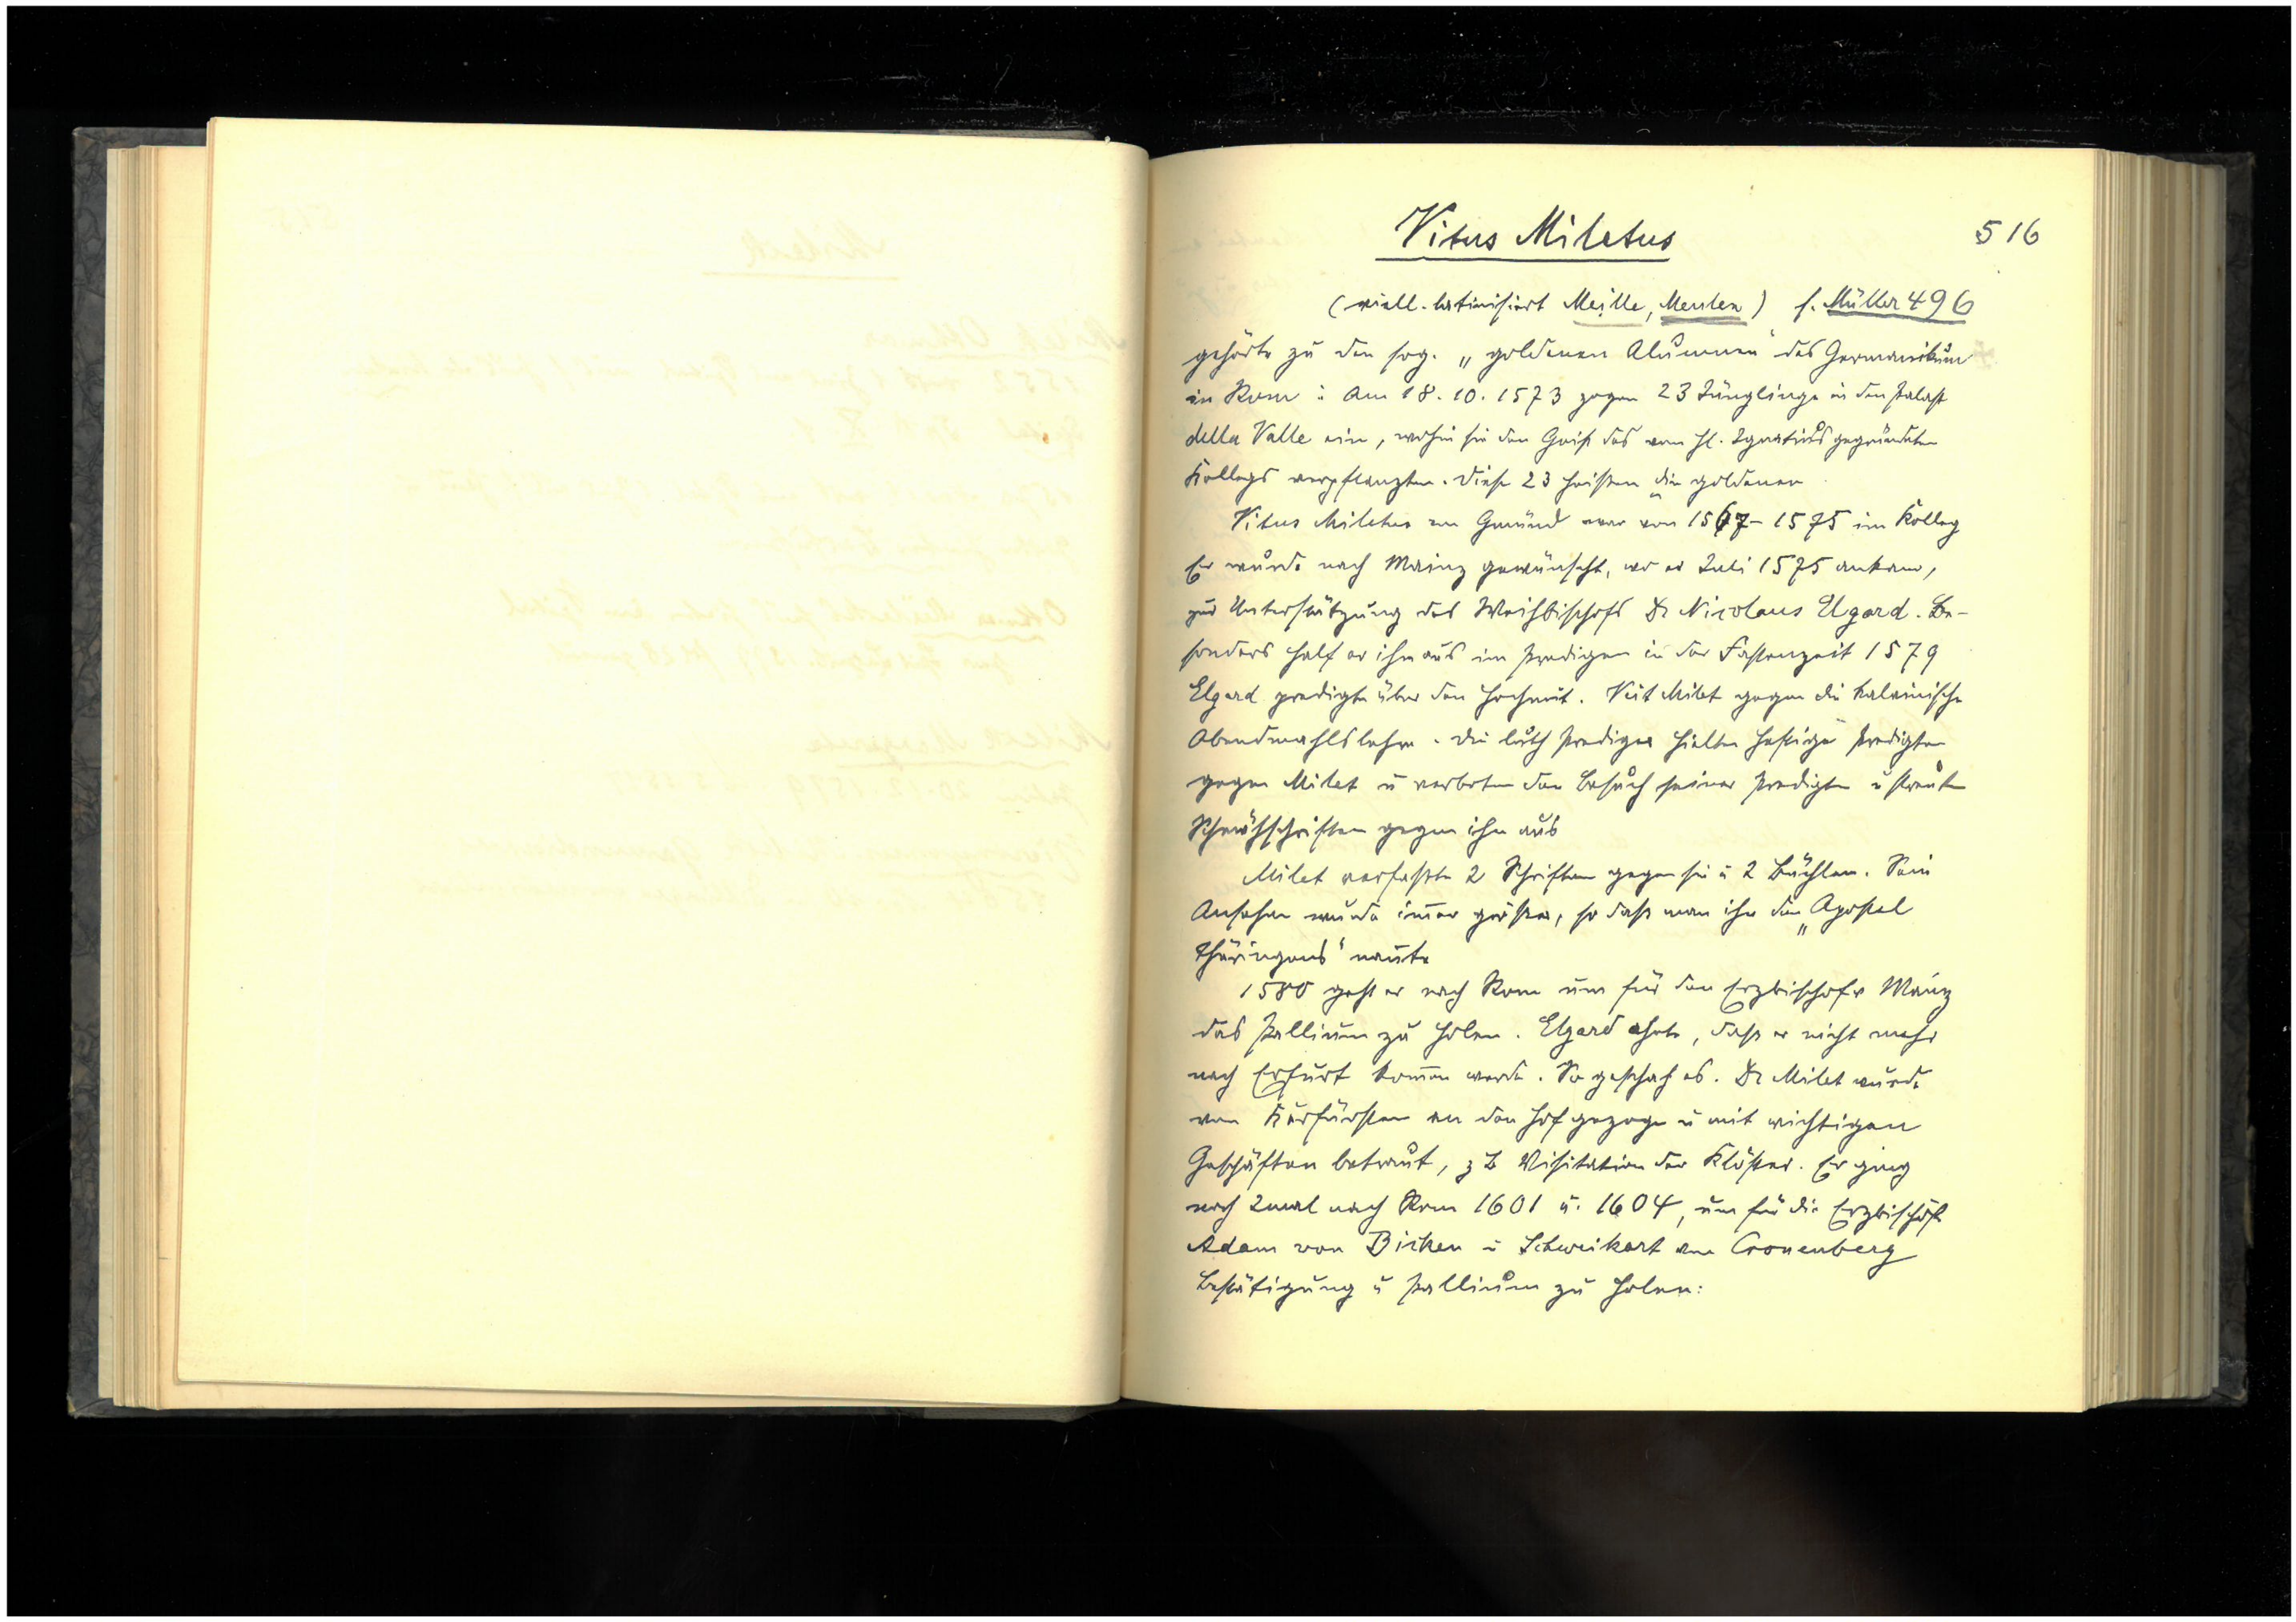 Vitus Miletus 516
(viell. latinisiert Meille, Meulen) s. Müller 496
gehörte zu den sog. „goldenen Alumnen" des Germanikum
in Rom: Am 18.10.1573 zogen 23 Jünglinge in den Palast
della Valle ein, wohin sie den Geist des vom hl. Ignatius gegründeten
Kollegs verpflanzten. Diese 23 heißen „die goldenen
Vitus Miletus von Gmünd war von 1567-1575 im Kolleg
Er wurde nach Mainz gewünscht, wo er Juli 1575 ankam,
zur Unterstützung des Weihbischofs Dr Nicolaus Elgard. Be-
sonders half er ihm aus im Predigen in der Fastenzeit 1579
Elgard predigte über den Hochmut. Veit Milet gegen die kalvinische
Abendmahlslehre. Die luth Prediger hielten heftige Predigten
gegen Milet u verboten den Besuch seiner Predigten u streuten
Schmähschriften gegen ihn aus
Milet verfaßte 2 Schriften gegen sie u 2 Büchlen. Sein
Ansehen wurde im̄er größer, so daß man ihn den „Apostel
Thüringens" nan̄te
1580 geht er nach Rom um für den Erzbischof v Mainz
das Pallium zu holen. Elgard ahnte, daß er nicht mehr
nach Erfurt kom̄en werde. So geschah es. Dr Milet wurde
vom Kurfürsten an den Hof gezogen u mit wichtigen
Geschäften betraut, z B Visitation der Klöster. Er ging
noch 2mal nach Rom 1601 u. 1604, um für die Erzbischöfe
Adam von Bicken u Schweikart von Cronenberg
Bestätigung u Pallium zu holen: